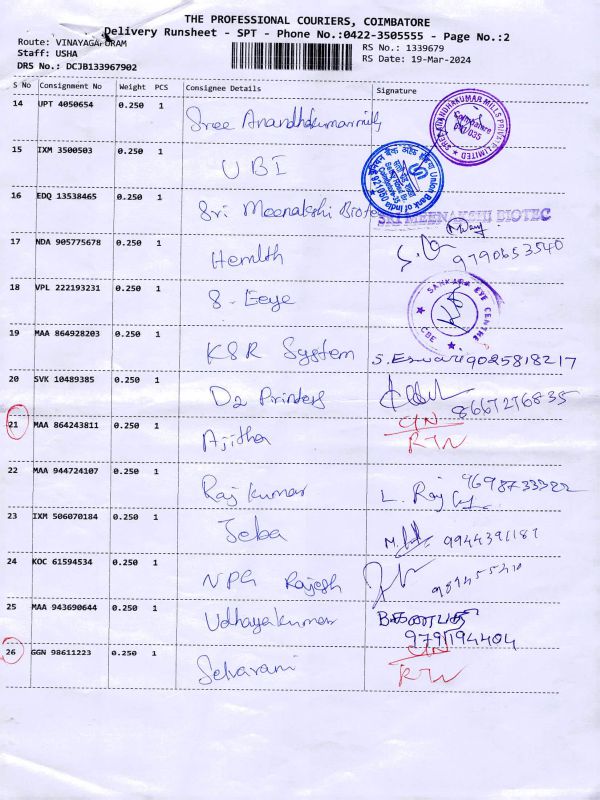 THE PROFESSIONAL COURIERS, COIMBATORE
Delivery Runsheet - SPT - Phone No.:0422-3505555 - Page No.:2
Route: VINAYAGAPURAM
Staff: USHA
DRS No.: DCJB133967902
RS No.: 1339679
RS Date: 19-Mar-2024
S No Consignment No Weight PCS Consignee Details Signature
14 UPT 4050654 0.250 1 Sree Anandhakumar mills
SREE ANANDHAKUMAR MILLS PRIVATE LIMITED
Coimbatore
15 IXM 3500503 0.250 1 UBI
Union Bank of India
16 EDQ 13538465 0.250 1 Sri Meenakshi Biotec
SRI MEENAKSHI BIOTEC
17 NDA 905775678 0.250 1 Hemlth
9790653540
18 VPL 222193231 0.250 1 S-Eeye
SANKARA EYE CENTRE
CBE
19 MAA 864928203 0.250 1 KSR System S. Eswari 9025818217
20 SVK 10489385 0.250 1 D2 Printers
8667276835
21 MAA 864243811 0.250 1 Ajitha C/N
RTN
22 MAA 944724107 0.250 1 Rajkumar L. Raj 9698733322
23 IXM 506070184 0.250 1 Jeba 9944391187
24 KOC 61594534 0.250 1 NPG Rajesh
25 MAA 943690644 0.250 1 Udhayakumar B.கணபதி
9791194404
26 GGN 98611223 0.250 1 Selvarani C/N
RTN